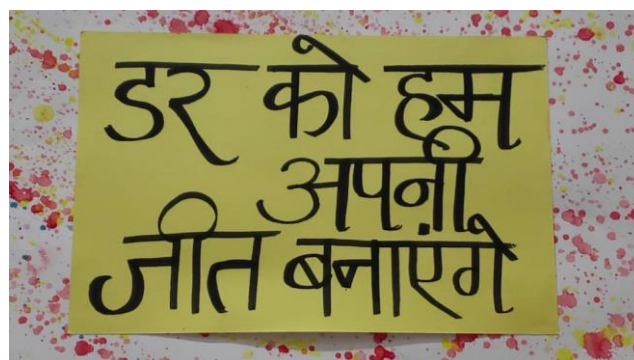 डर को हम
अपनी
जीत बनाएंगे